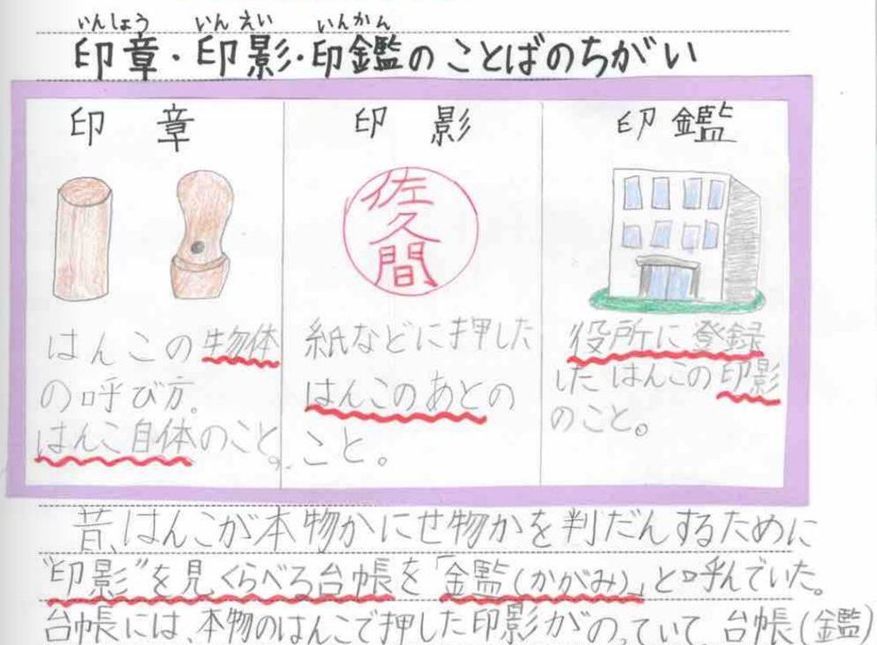 いんしょう いんえい いんかん
印章・印影・印鑑のことばのちがい
印章
はんこの物体
の呼び方。
はんこ自体のこと。
印影
佐久間
紙などに押した
はんこのあとの
こと。
印鑑
役所に登録
したはんこの印影
のこと。
昔、はんこが本物かにせ物かを判だんするために
"印影"を見くらべる台帳を「鑑(かがみ)」と呼んでいた。
台帳には、本物のはんこで押した印影がのっていて、台帳(鑑)